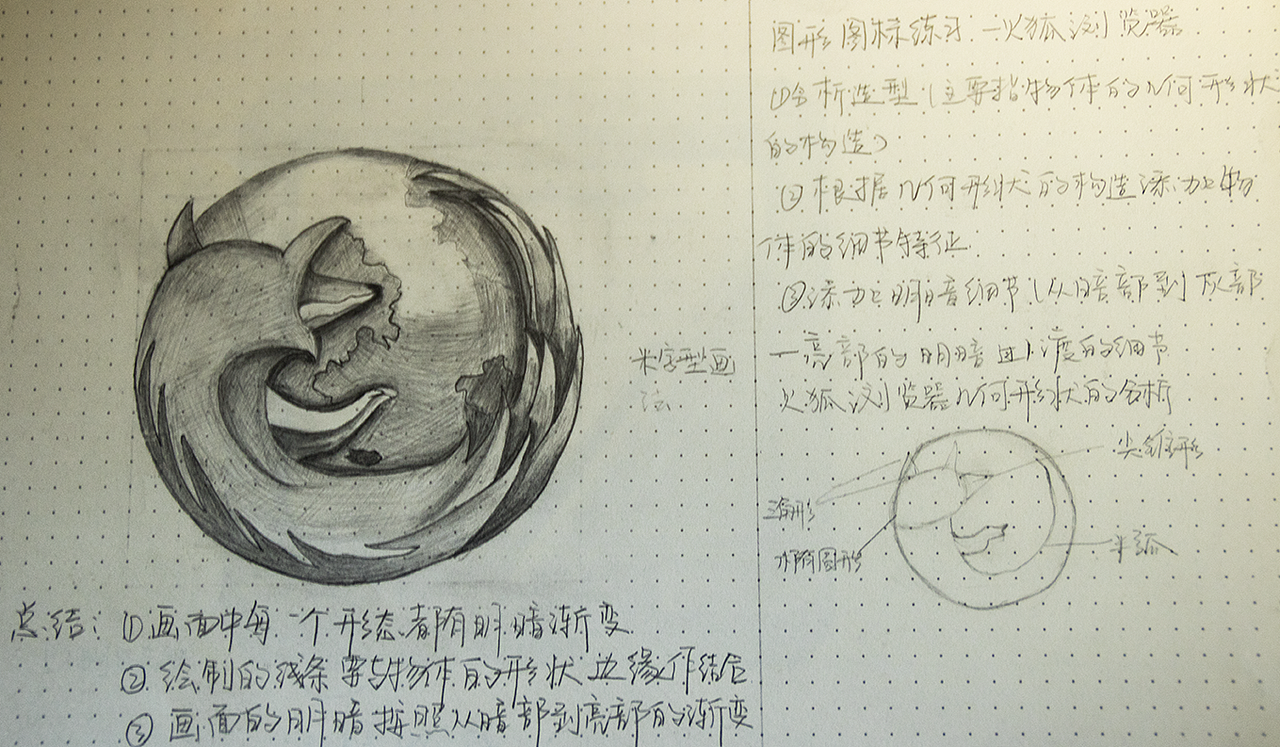 图形图标练习一火狐浏览器
①分析造型(主要指物体的几何形状
的构造)
②根据几何形状的构造添加上物
体的细节特征
③添加上明暗细节(从暗部到灰部
一亮部的明暗过渡的细节
火狐浏览器几何形状的分析
尖锥形
三角形
椭圆形
半弧
米字型画
法
总结:①画面中每一个形态都有明暗渐变
②绘制的线条要与物体的形状边缘作结合
③画面的明暗按照从暗部到亮部的渐变